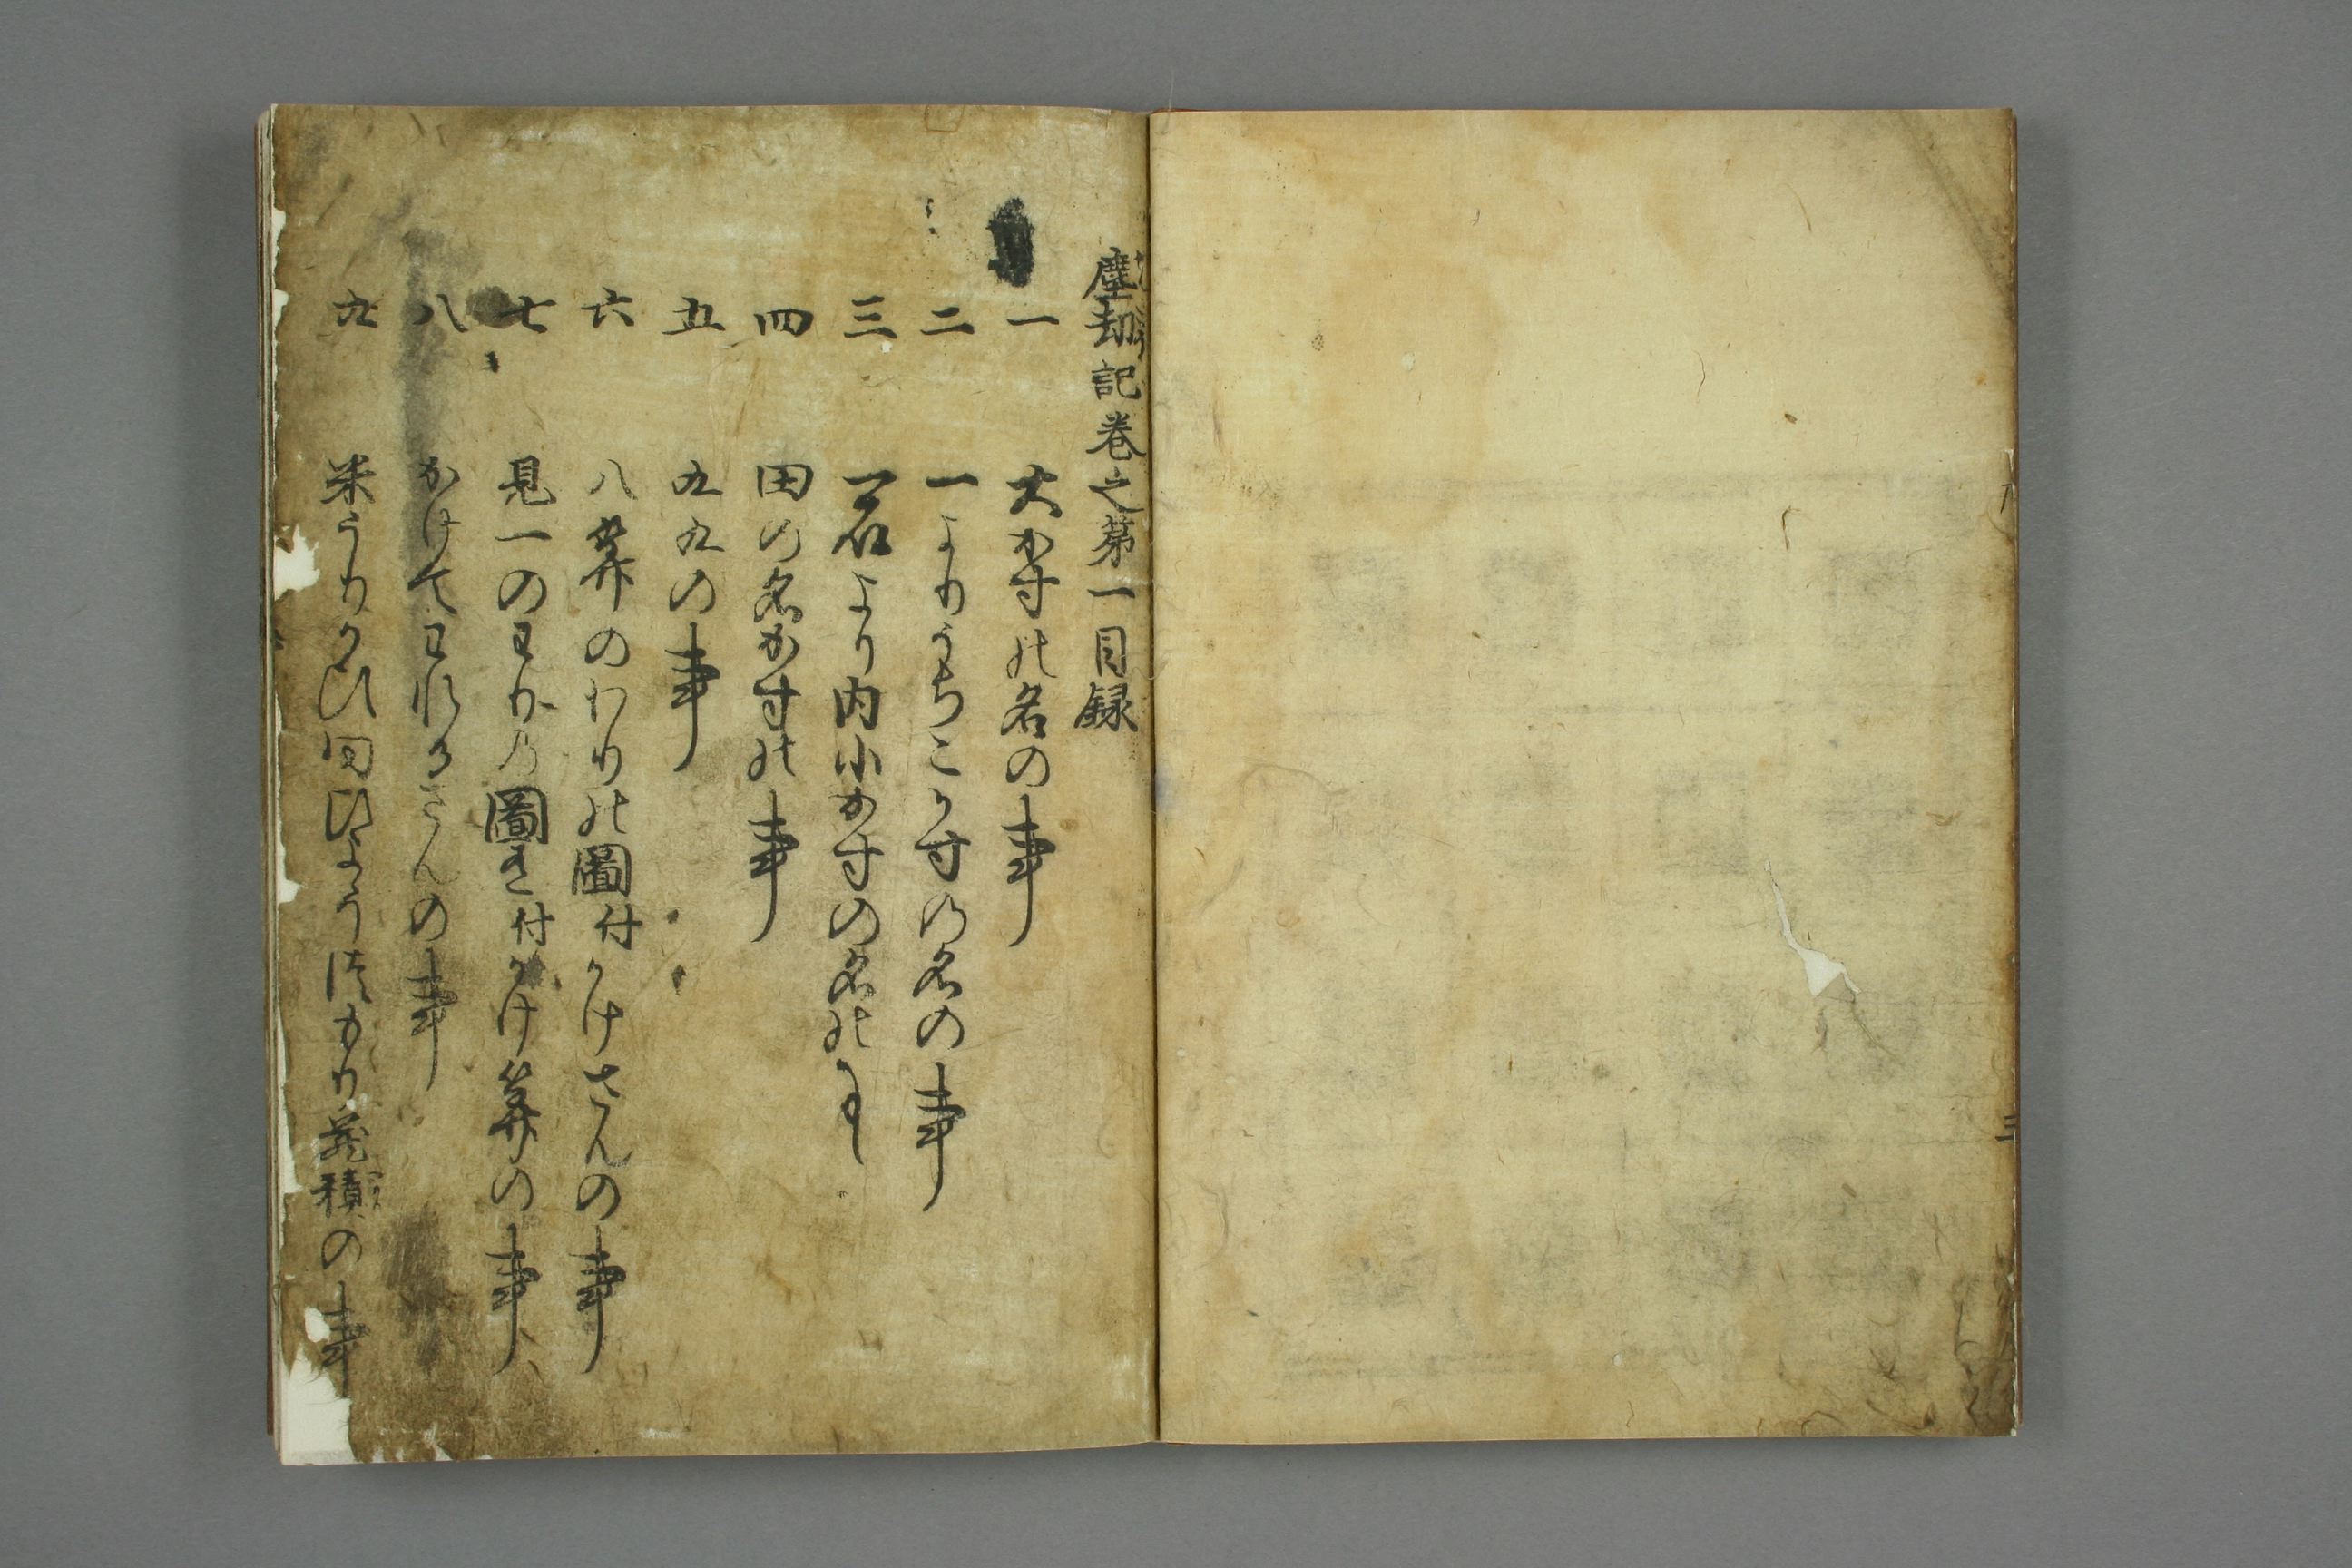 塵劫記巻之第一目録
一 大かすの名の事
二 一よりうちこかすの名の事
三 一石より内小かすの名の事
四 田の名かすの事
五 九九の事
六 八算のわりの圖付かけさんの事
七 見一のわりの圖付かけ算の事
八 かけてわれるさんの事
九 米うりかひ 同 つもり 積の事